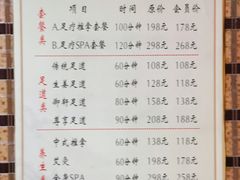 项目 时间 原价 会员价
套餐类
A.足疗推拿套餐 100分钟 198元 178元
B.足疗SPA套餐 120分钟 298元 268元
足道类
传统足道 60分钟 118元 98元
生姜足道 60分钟 128元 108元
御轩足道 80分钟 158元 138元
尊享足道 90分钟 208元 188元
养生类
中式推拿 60分钟 138元 118元
艾灸 60分钟 198元 178元
90分钟 298元 258元